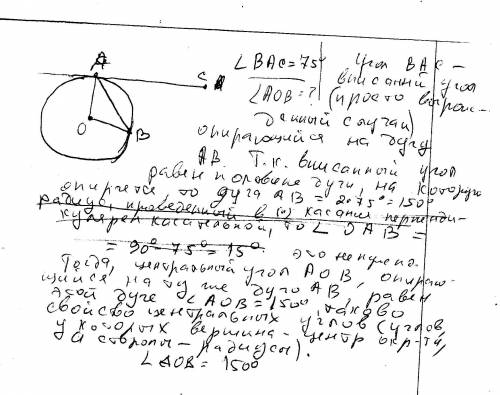 A
C
O
B
∠BAC=75°
∠AOB=?
Угол BAC -
вписанный угол
(просто вырож-
денный случай)
опирающийся на дугу
AB. Т.к. вписанный угол
равен половине дуги, на которую
опирается, то дуга AB = 2·75° = 150°
радиус, проведенный в (·) касания перпенди-
кулярен касательной, то ∠OAB =
= 90° - 75° = 15°. это не нужно.
Тогда, центральный угол AOB, опираю-
щийся на ту же дугу AB, равен
этой дуге ∠AOB = 150°, таково
свойство центральных углов (углов,
у которых вершина - центр окр-ти,
а стороны - радиусы).
∠AOB = 150°